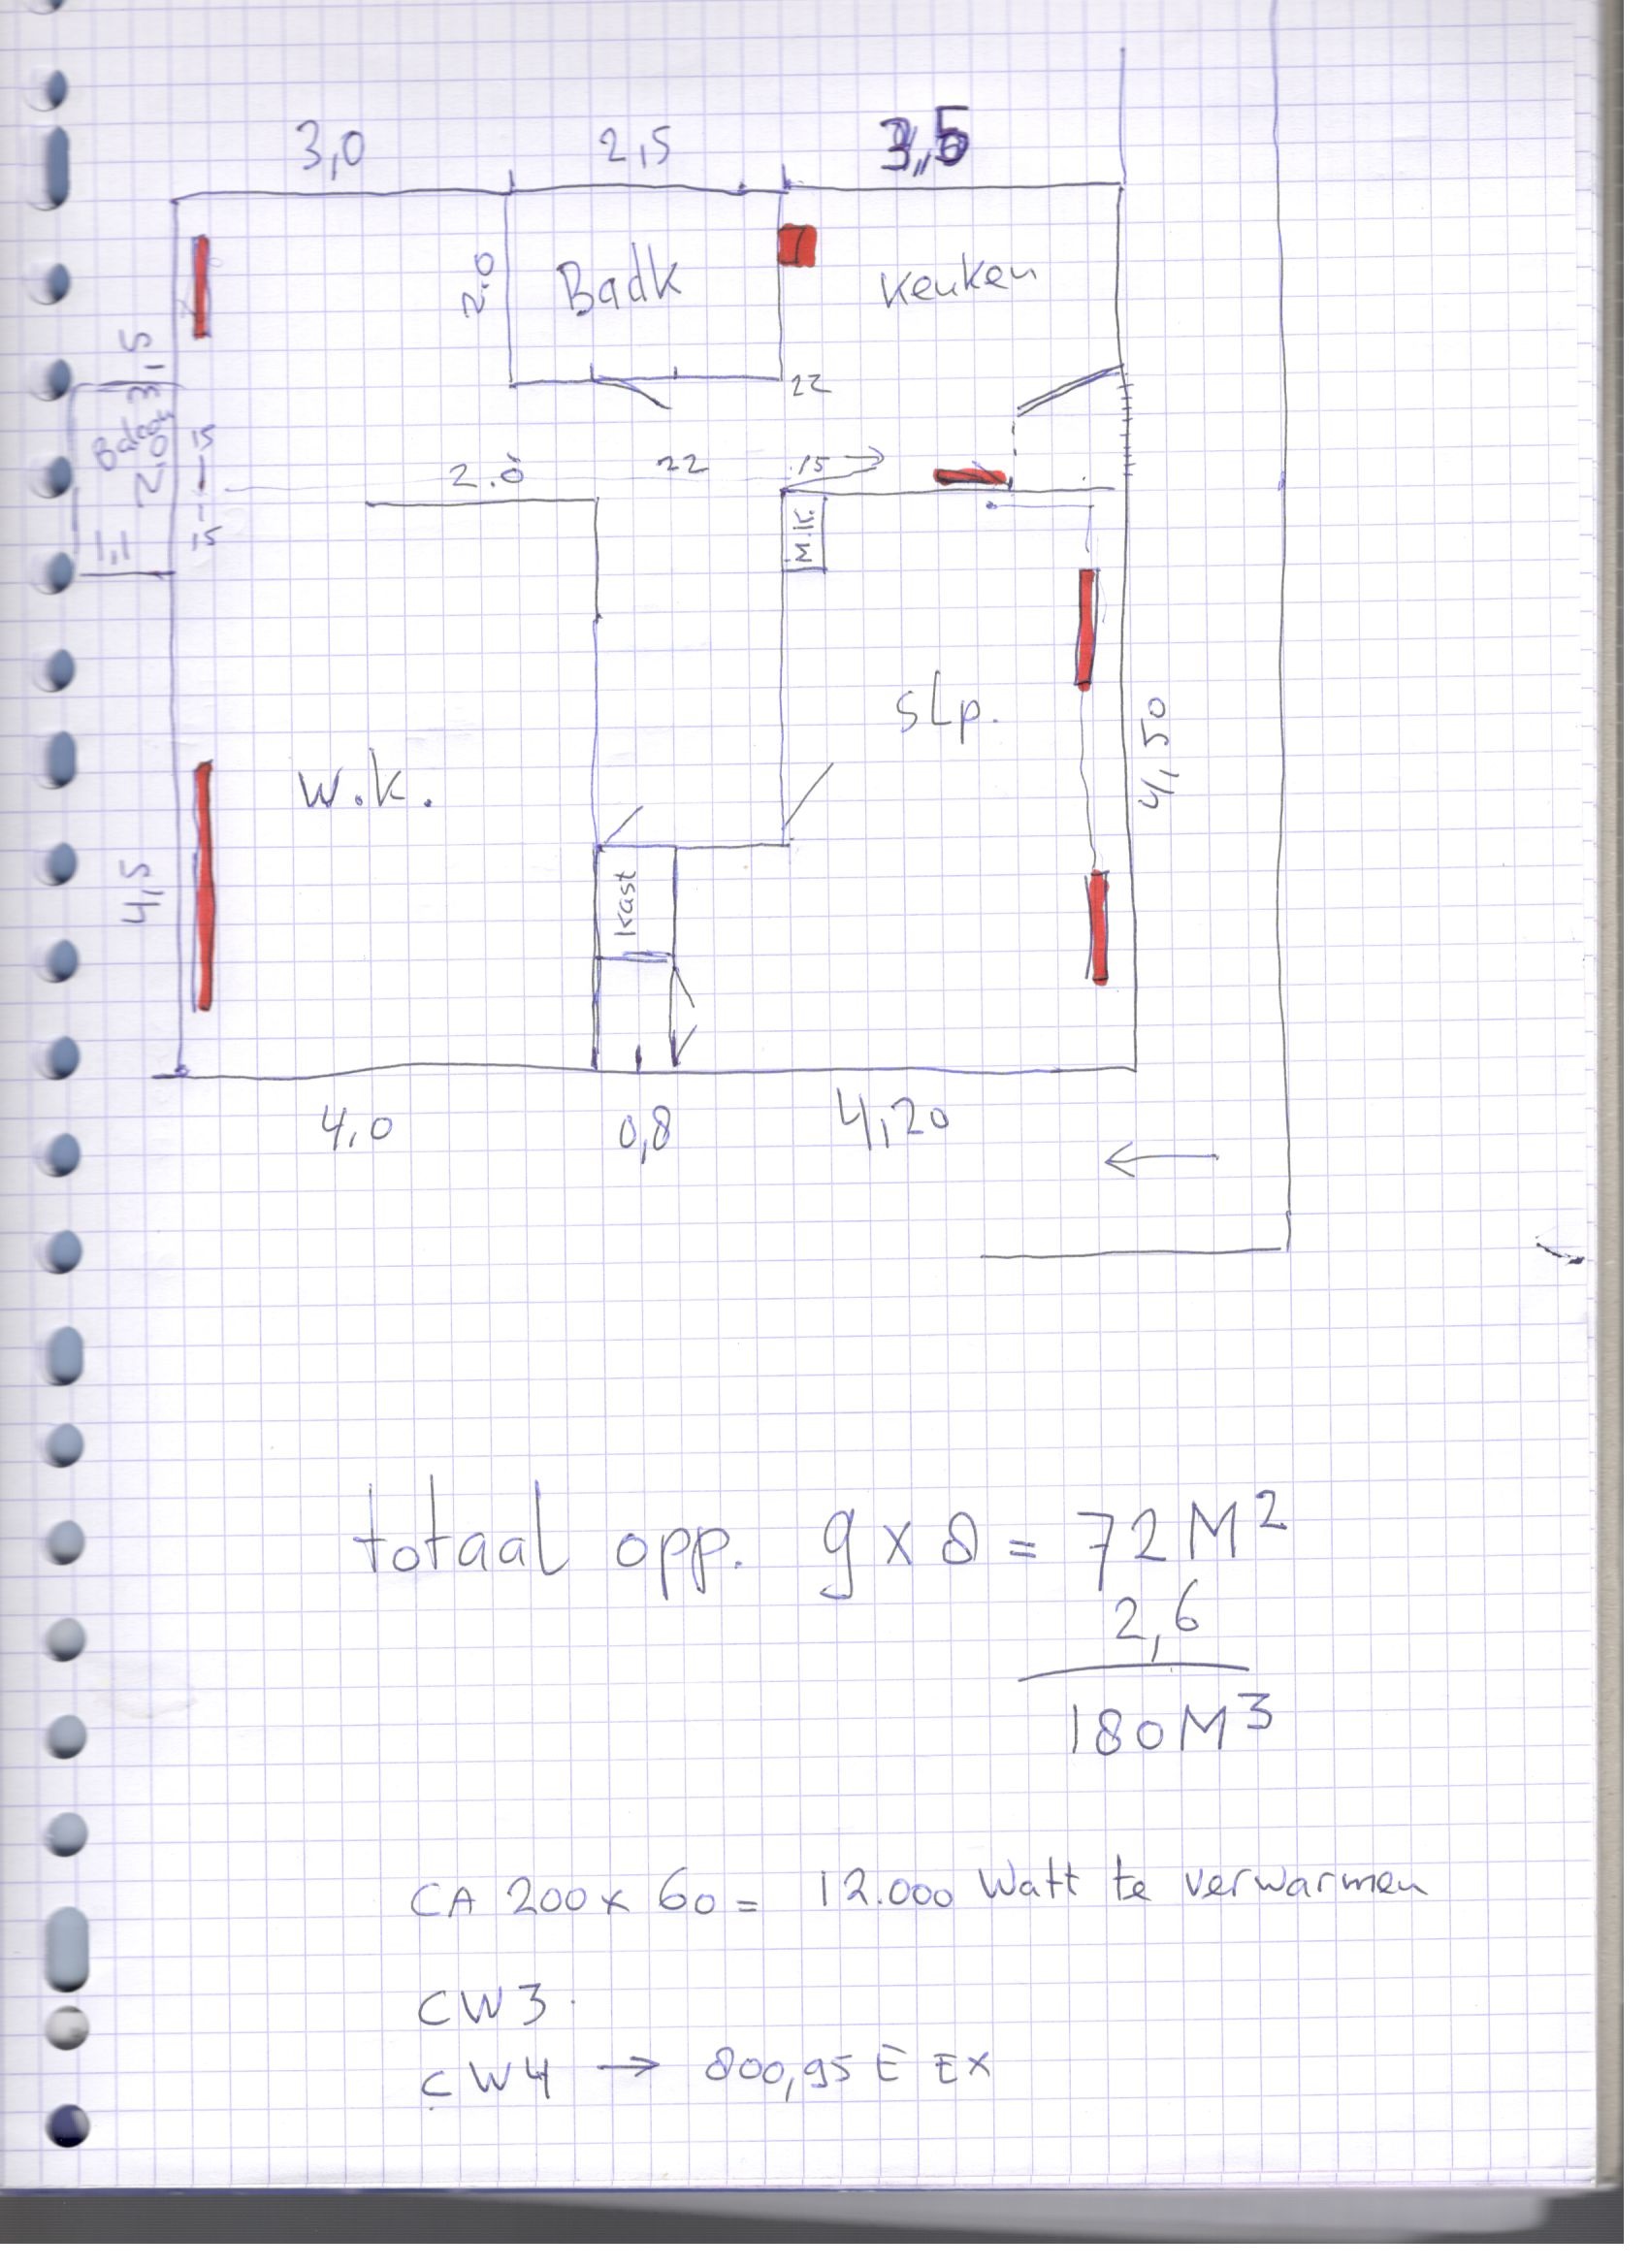 3,0
2,5
3,5
2.0
Badk
Keuken
3,5
22
2.0
22
15
15
2,0
1,1
15
M.K.
sLp.
4,50
w.k.
4,5
Kast
4,0
0,8
4,20
totaal opp. 9 x 8 = 72 M²
2,6
180 M³
CA 200 x 60 = 12.000 Watt te verwarmen
CW3
CW4 → 800,95 E EX